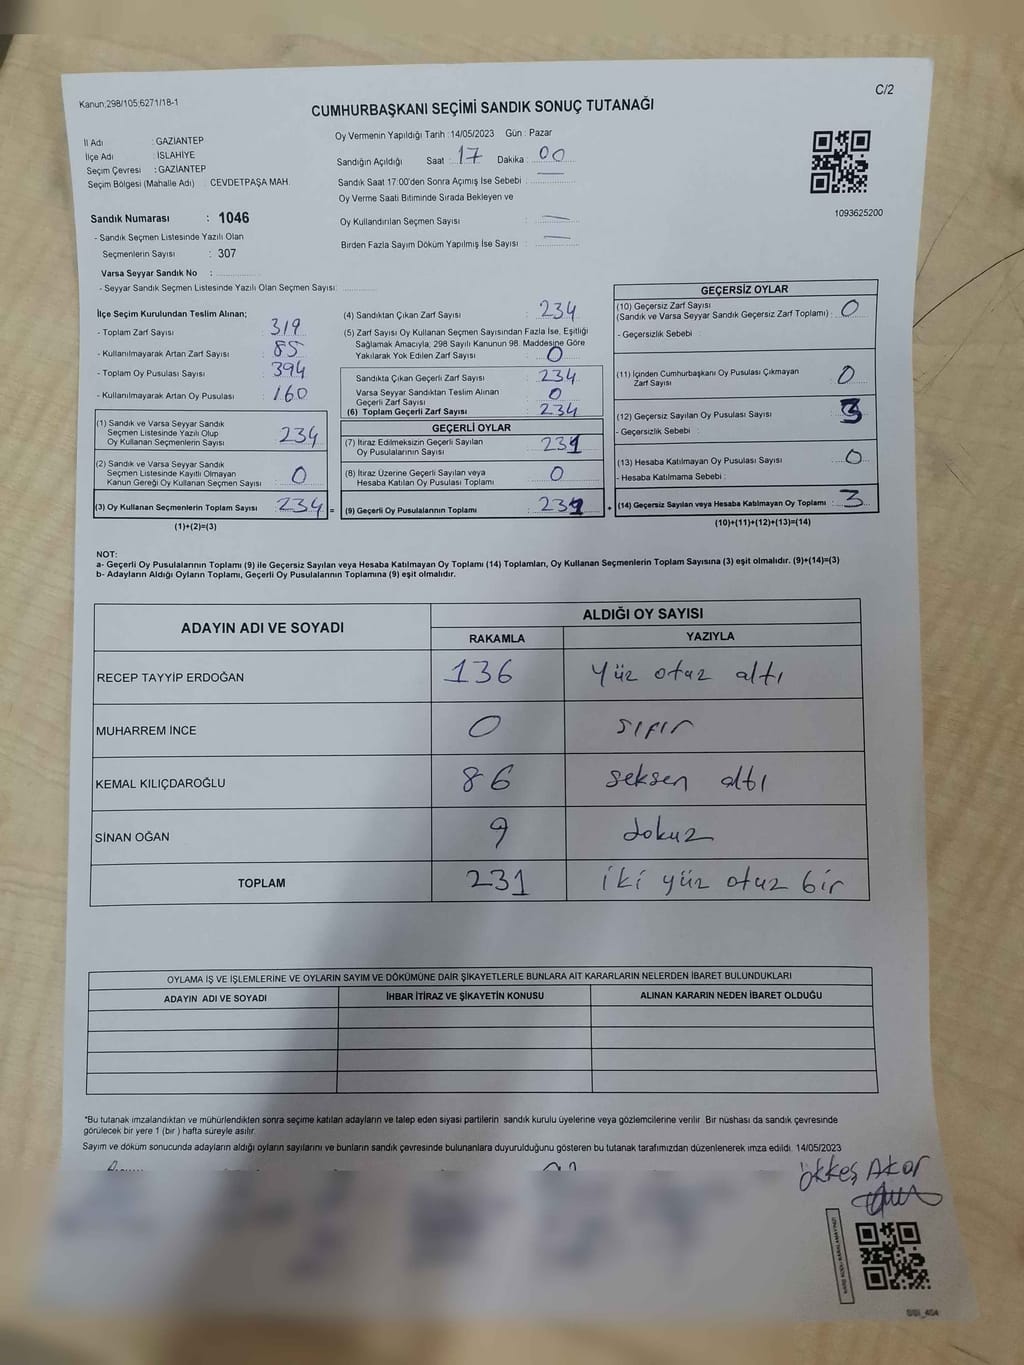 Kanun;298/105;6271/18-1
C/2
CUMHURBAŞKANI SEÇİMİ SANDIK SONUÇ TUTANAĞI
İl Adı : GAZİANTEP
İlçe Adı : İSLAHİYE
Seçim Çevresi : GAZİANTEP
Seçim Bölgesi (Mahalle Adı) : CEVDETPAŞA MAH.
Sandık Numarası : 1046
- Sandık Seçmen Listesinde Yazılı Olan
Seçmenlerin Sayısı : 307
Varsa Seyyar Sandık No :
- Seyyar Sandık Seçmen Listesinde Yazılı Olan Seçmen Sayısı:
Oy Vermenin Yapıldığı Tarih :14/05/2023 Gün : Pazar
Sandığın Açıldığı Saat : 17 Dakika : 00
Sandık Saat 17:00'den Sonra Açımış İse Sebebi : —
Oy Verme Saati Bitiminde Sırada Bekleyen ve
Oy Kullandırılan Seçmen Sayısı : —
Birden Fazla Sayım Döküm Yapılmış İse Sayısı : —
1093625200
İlçe Seçim Kurulundan Teslim Alınan;
- Toplam Zarf Sayısı : 319
- Kullanılmayarak Artan Zarf Sayısı : 85
- Toplam Oy Pusulası Sayısı : 394
- Kullanılmayarak Artan Oy Pusulası : 160
(1) Sandık ve Varsa Seyyar Sandık
Seçmen Listesinde Yazılı Olup
Oy Kullanan Seçmenlerin Sayısı : 234
(2) Sandık ve Varsa Seyyar Sandık
Seçmen Listesinde Kayıtlı Olmayan
Kanun Gereği Oy Kullanan Seçmen Sayısı : 0
(3) Oy Kullanan Seçmenlerin Toplam Sayısı : 234 =
(1)+(2)=(3)
(4) Sandıktan Çıkan Zarf Sayısı : 234
(5) Zarf Sayısı Oy Kullanan Seçmen Sayısından Fazla İse, Eşitliği
Sağlamak Amacıyla; 298 Sayılı Kanunun 98. Maddesine Göre
Yakılarak Yok Edilen Zarf Sayısı : 0
Sandıkta Çıkan Geçerli Zarf Sayısı : 234
Varsa Seyyar Sandıktan Teslim Alınan
Geçerli Zarf Sayısı : 0
(6) Toplam Geçerli Zarf Sayısı : 234
GEÇERLİ OYLAR
(7) İtiraz Edilmeksizin Geçerli Sayılan
Oy Pusulalarının Sayısı : 231
(8) İtiraz Üzerine Geçerli Sayılan veya
Hesaba Katılan Oy Pusulası Toplamı : 0
(9) Geçerli Oy Pusulalarının Toplamı : 231 +
GEÇERSİZ OYLAR
(10) Geçersiz Zarf Sayısı
(Sandık ve Varsa Seyyar Sandık Geçersiz Zarf Toplamı) : 0
- Geçersizlik Sebebi :
(11) İçinden Cumhurbaşkanı Oy Pusulası Çıkmayan
Zarf Sayısı : 0
(12) Geçersiz Sayılan Oy Pusulası Sayısı : 3
- Geçersizlik Sebebi :
(13) Hesaba Katılmayan Oy Pusulası Sayısı : 0
- Hesaba Katılmama Sebebi :
(14) Geçersiz Sayılan veya Hesaba Katılmayan Oy Toplamı : 3
(10)+(11)+(12)+(13)=(14)
NOT:
a- Geçerli Oy Pusulalarının Toplamı (9) ile Geçersiz Sayılan veya Hesaba Katılmayan Oy Toplamı (14) Toplamları, Oy Kullanan Seçmenlerin Toplam Sayısına (3) eşit olmalıdır. (9)+(14)=(3)
b- Adayların Aldığı Oyların Toplamı, Geçerli Oy Pusulalarının Toplamına (9) eşit olmalıdır.
ADAYIN ADI VE SOYADI ALDIĞI OY SAYISI
RAKAMLA YAZIYLA
RECEP TAYYİP ERDOĞAN 136 yüz otuz altı
MUHARREM İNCE 0 sıfır
KEMAL KILIÇDAROĞLU 86 seksen altı
SİNAN OĞAN 9 dokuz
TOPLAM 231 iki yüz otuz bir
OYLAMA İŞ VE İŞLEMLERİNE VE OYLARIN SAYIM VE DÖKÜMÜNE DAİR ŞİKAYETLERLE BUNLARA AİT KARARLARIN NELERDEN İBARET BULUNDUKLARI
ADAYIN ADI VE SOYADI İHBAR İTİRAZ VE ŞİKAYETİN KONUSU ALINAN KARARIN NEDEN İBARET OLDUĞU
*Bu tutanak imzalandıktan ve mühürlendikten sonra seçime katılan adayların ve talep eden siyasi partilerin sandık kurulu üyelerine veya gözlemcilerine verilir. Bir nüshası da sandık çevresinde
görülecek bir yere 1 (bir ) hafta süreyle asılır.
Sayım ve döküm sonucunda adayların aldığı oyların sayılarını ve bunların sandık çevresinde bulunanlara duyurulduğunu gösteren bu tutanak tarafımızdan düzenlenerek imza edildi. 14/05/2023
Ökkeş Akar